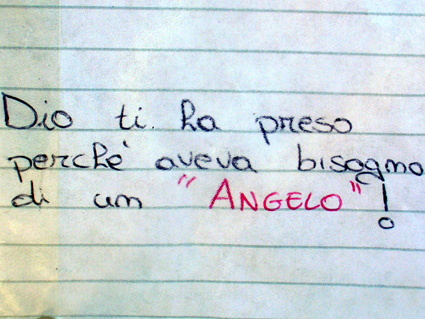 Dio ti ha preso
perché aveva bisogno
di un "ANGELO"!